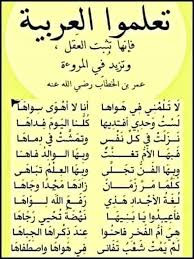 تعلموا العربية
فإنها تثبت العقل ،
وتزيد في المروءة
عمر بن الخطاب رضي الله عنه
لا تلمني في هواها أنا لا أهوى سواها
لست وحدي أفتديها كلنا اليوم فداها
نزلت في كل نفس وتمشت في دماها
فبها الأم تغنت وبها الوالد فاها
وبها الفن تجلى وبها العلم تباهى
كلما مر زمان زادها مدحا وجاها
لغة الأجداد هذي رفع الله لواها
فأعيدوا يا بنيها نهضة تحيي رجاها
عند ذكراها الجباها
لم يمت شعب تفانى في هواها واصطفاها